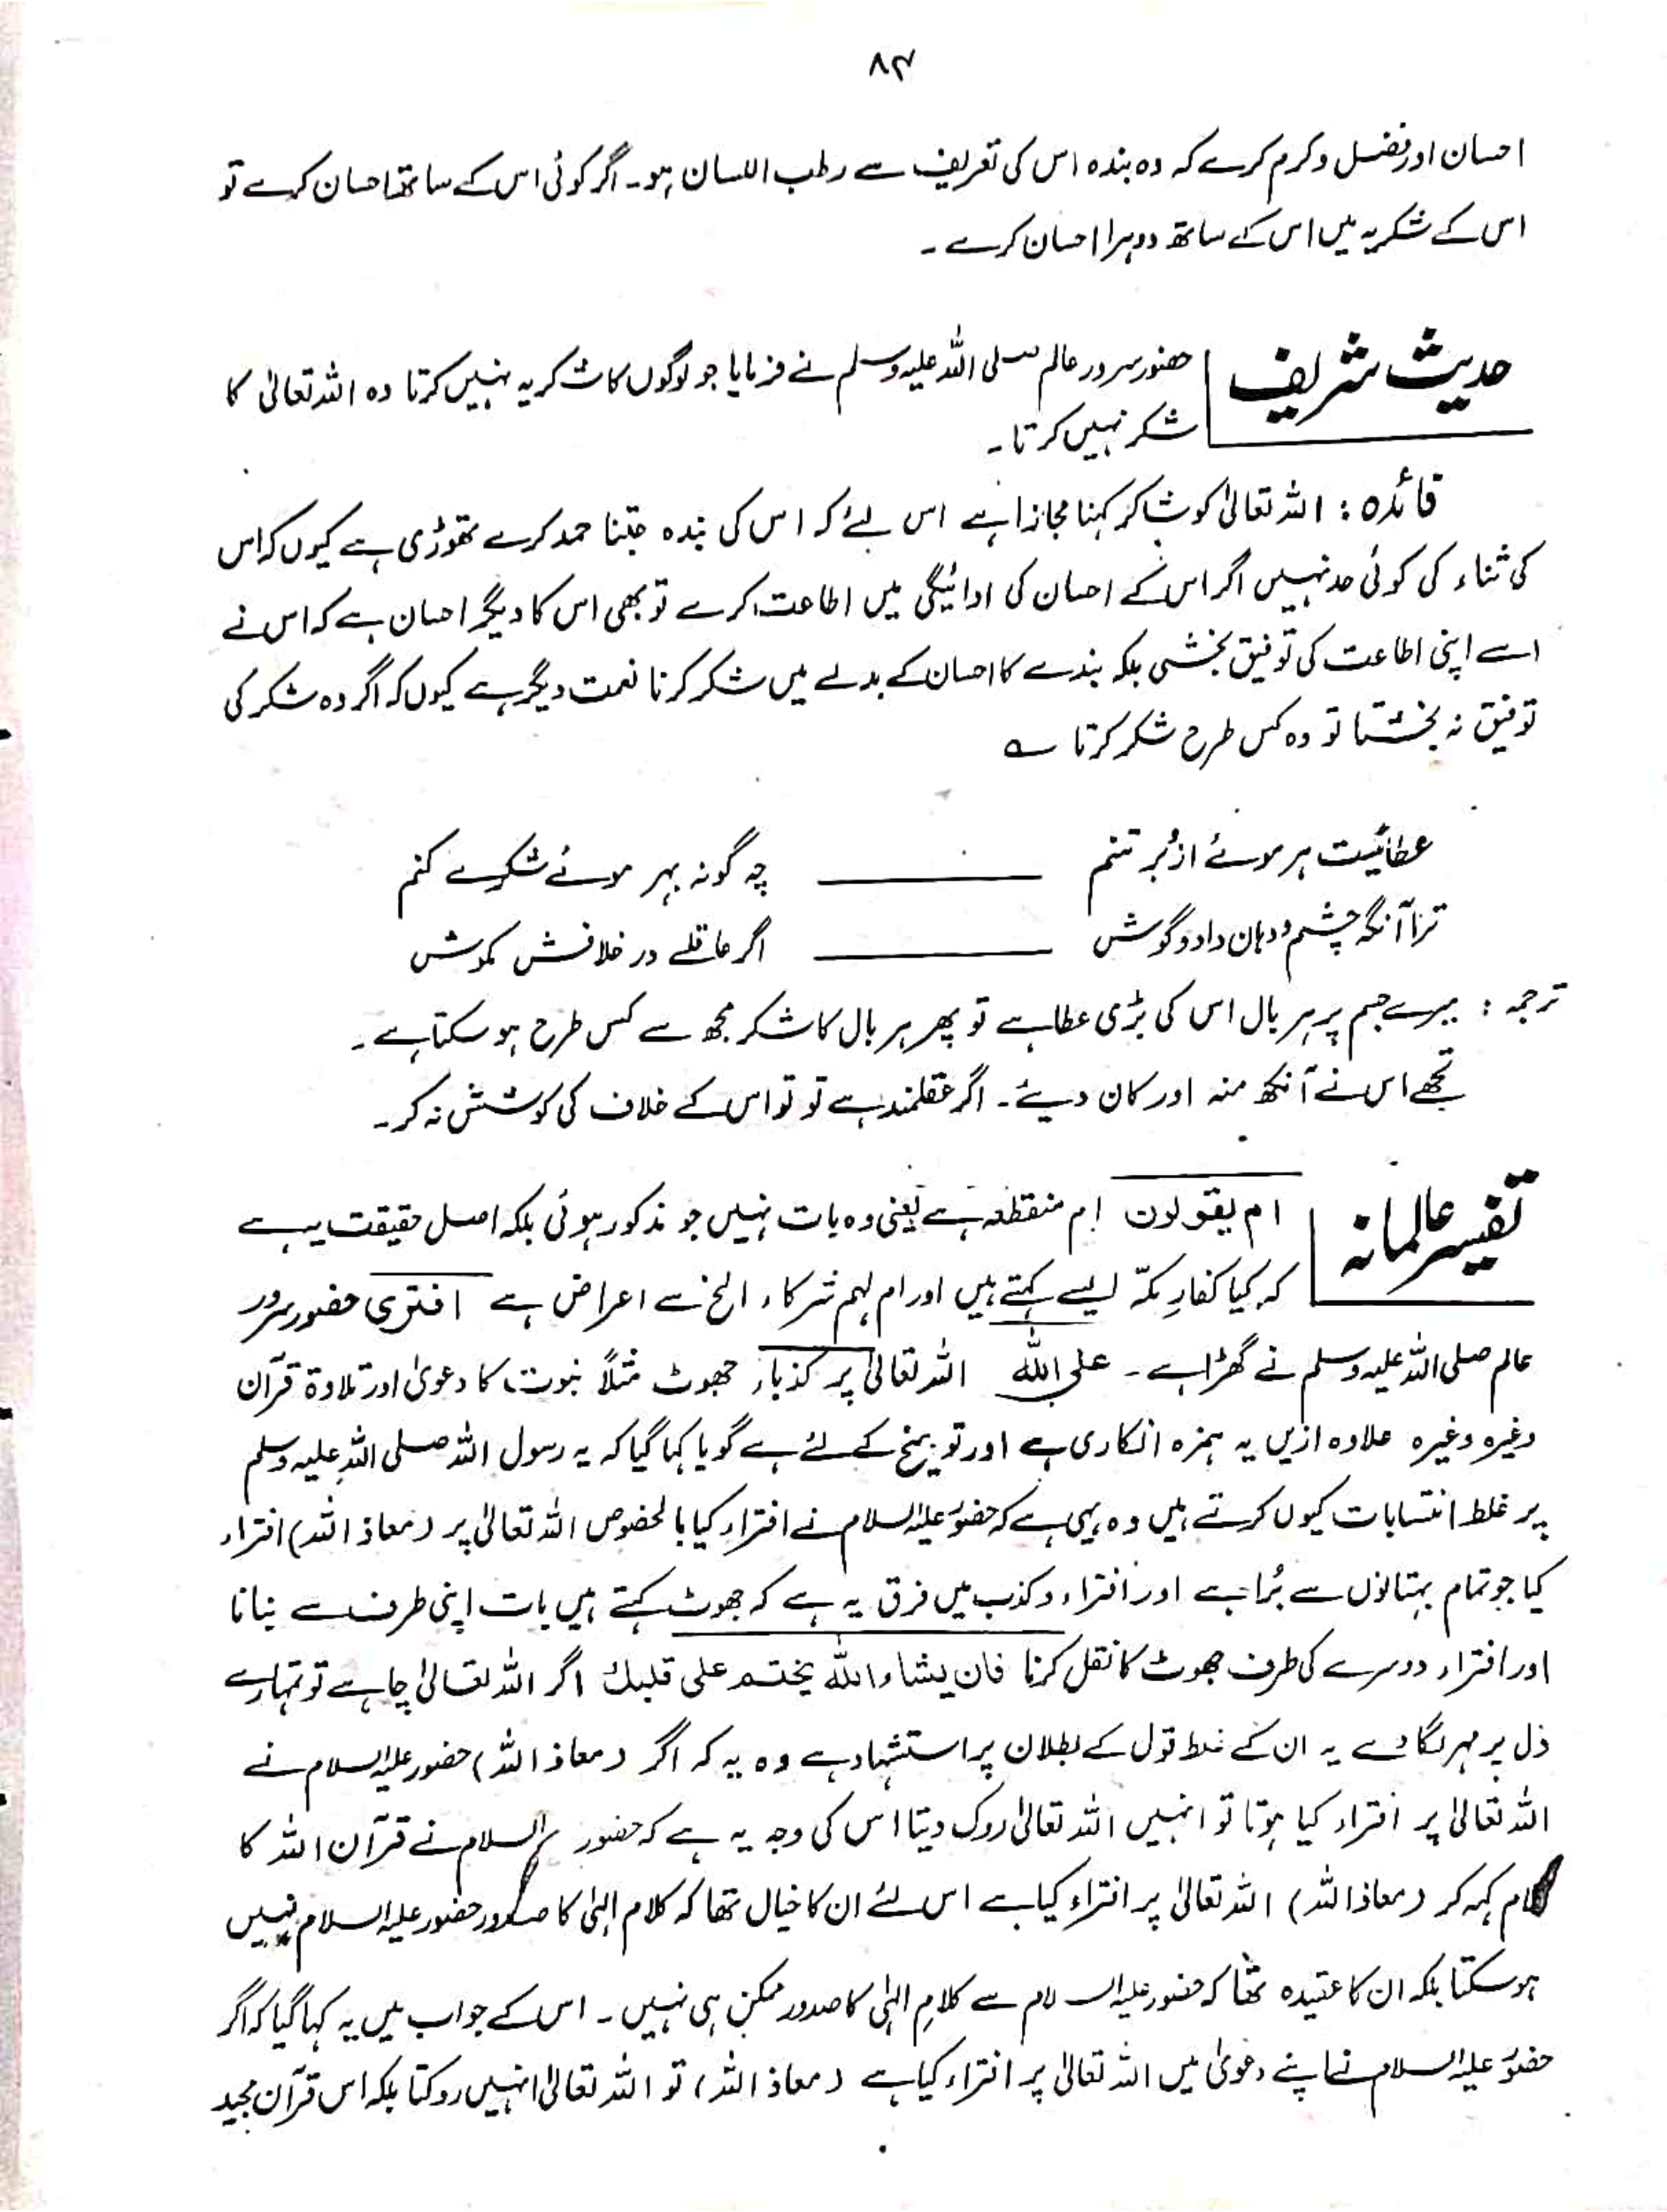 ۸۴
احسان اور فضل و کرم کرے کہ وہ بندہ اس کی تعریف سے رطب اللسان ہو۔ اگر کوئی اس کے ساتھ احسان کرے تو
اس کے شکریہ میں اس کے ساتھ دوہرا احسان کرے ۔
حدیث شریف
حضور سرور عالم صلی اللہ علیہ وسلم نے فرمایا جو لوگوں کا شکریہ نہیں کرتا وہ اللہ تعالیٰ کا
شکر نہیں کرتا ۔
فائدہ : اللہ تعالیٰ کو شاکر کہنا مجازاً ہے اس لئے کہ اس کی بندہ جتنا حمد کرے تھوڑی ہے کیوں کہ اس
کی ثناء کی کوئی حد نہیں اگر اس کے احسان کی ادائیگی میں اطاعت کرے تو بھی اس کا دیگر احسان ہے کہ اس نے
اسے اپنی اطاعت کی توفیق بخشی بلکہ بندے کا احسان کے بدلے میں شکر کرنا نعمت دیگر ہے کیوں کہ اگر وہ شکر کی
توفیق نہ بخشتا تو وہ کس طرح شکر کرتا ؎
عطائیست ہر موئے از بر تنم ـــــــ چہ گونہ بہر موئے شکرے کنم
ترا آنکہ چشم و دہان داد و گوش ـــــــ اگر عاقلے در خلافش مکوش
ترجمہ : میرے جسم پر ہر بال اس کی بڑی عطا ہے تو پھر ہر بال کا شکر مجھ سے کس طرح ہو سکتا ہے ۔
تجھے اس نے آنکھ منہ اور کان دیئے ۔ اگر عقلمند ہے تو تو اس کے خلاف کی کوشش نہ کر ۔
تفسیر عالمانہ
ام یقولون ام منقطعہ ہے یعنی وہ بات نہیں جو مذکور ہوئی بلکہ اصل حقیقت یہ ہے
کہ کیا کفارِ مکہّ ایسے کہتے ہیں اور ام لہم شرکاء الخ سے اعراض ہے افتری حضور سرور
عالم صلی اللہ علیہ وسلم نے گھڑا ہے ۔ علی اللہ اللہ تعالیٰ پر کذبا، جھوٹ مثلاً نبوت کا دعویٰ اور تلاوۃ قرآن
وغیرہ وغیرہ علاوہ ازیں یہ ہمزہ انکاری ہے اور توبیخ کے لئے ہے گویا کہا گیا کہ یہ رسول اللہ صلی اللہ علیہ وسلم
پر غلط انتسابات کیوں کرتے ہیں وہ یہی ہے کہ حضور علیہ السلام نے افتراء کیا بالخصوص اللہ تعالیٰ پر (معاذ اللہ) افتراء
کیا جو تمام بہتانوں سے بُرا ہے اور افتراء و کذب میں فرق یہ ہے کہ جھوٹ کہتے ہیں بات اپنی طرف سے بنانا
اور افتراء دوسرے کی طرف جھوٹ کا نقل کرنا فان یشاء اللہ یختم علی قلبك اگر اللہ تعالیٰ چاہے تو تمہارے
دل پر مہر لگا دے یہ ان کے غلط قول کے بطلان پر استشہاد ہے وہ یہ کہ اگر (معاذ اللہ) حضور علیہ السلام نے
اللہ تعالیٰ پر افتراء کیا ہوتا تو انہیں اللہ تعالیٰ روک دیتا اس کی وجہ یہ ہے کہ حضور السلام نے قرآن اللہ کا
کلام کہہ کر (معاذ اللہ) اللہ تعالیٰ پر افتراء کیا ہے اس لئے ان کا خیال تھا کہ کلام الہٰی کا صدور حضور علیہ السلام نہیں
ہو سکتا بلکہ ان کا عقیدہ تھا کہ حضور علیہ السلام سے کلامِ الہٰی کا صدور ممکن ہی نہیں ۔ اس کے جواب میں یہ کہا گیا کہ اگر
حضور علیہ السلام نے اپنے دعویٰ میں اللہ تعالیٰ پر افتراء کیا ہے (معاذ اللہ) تو اللہ تعالیٰ انہیں روکتا بلکہ اس قرآن مجید